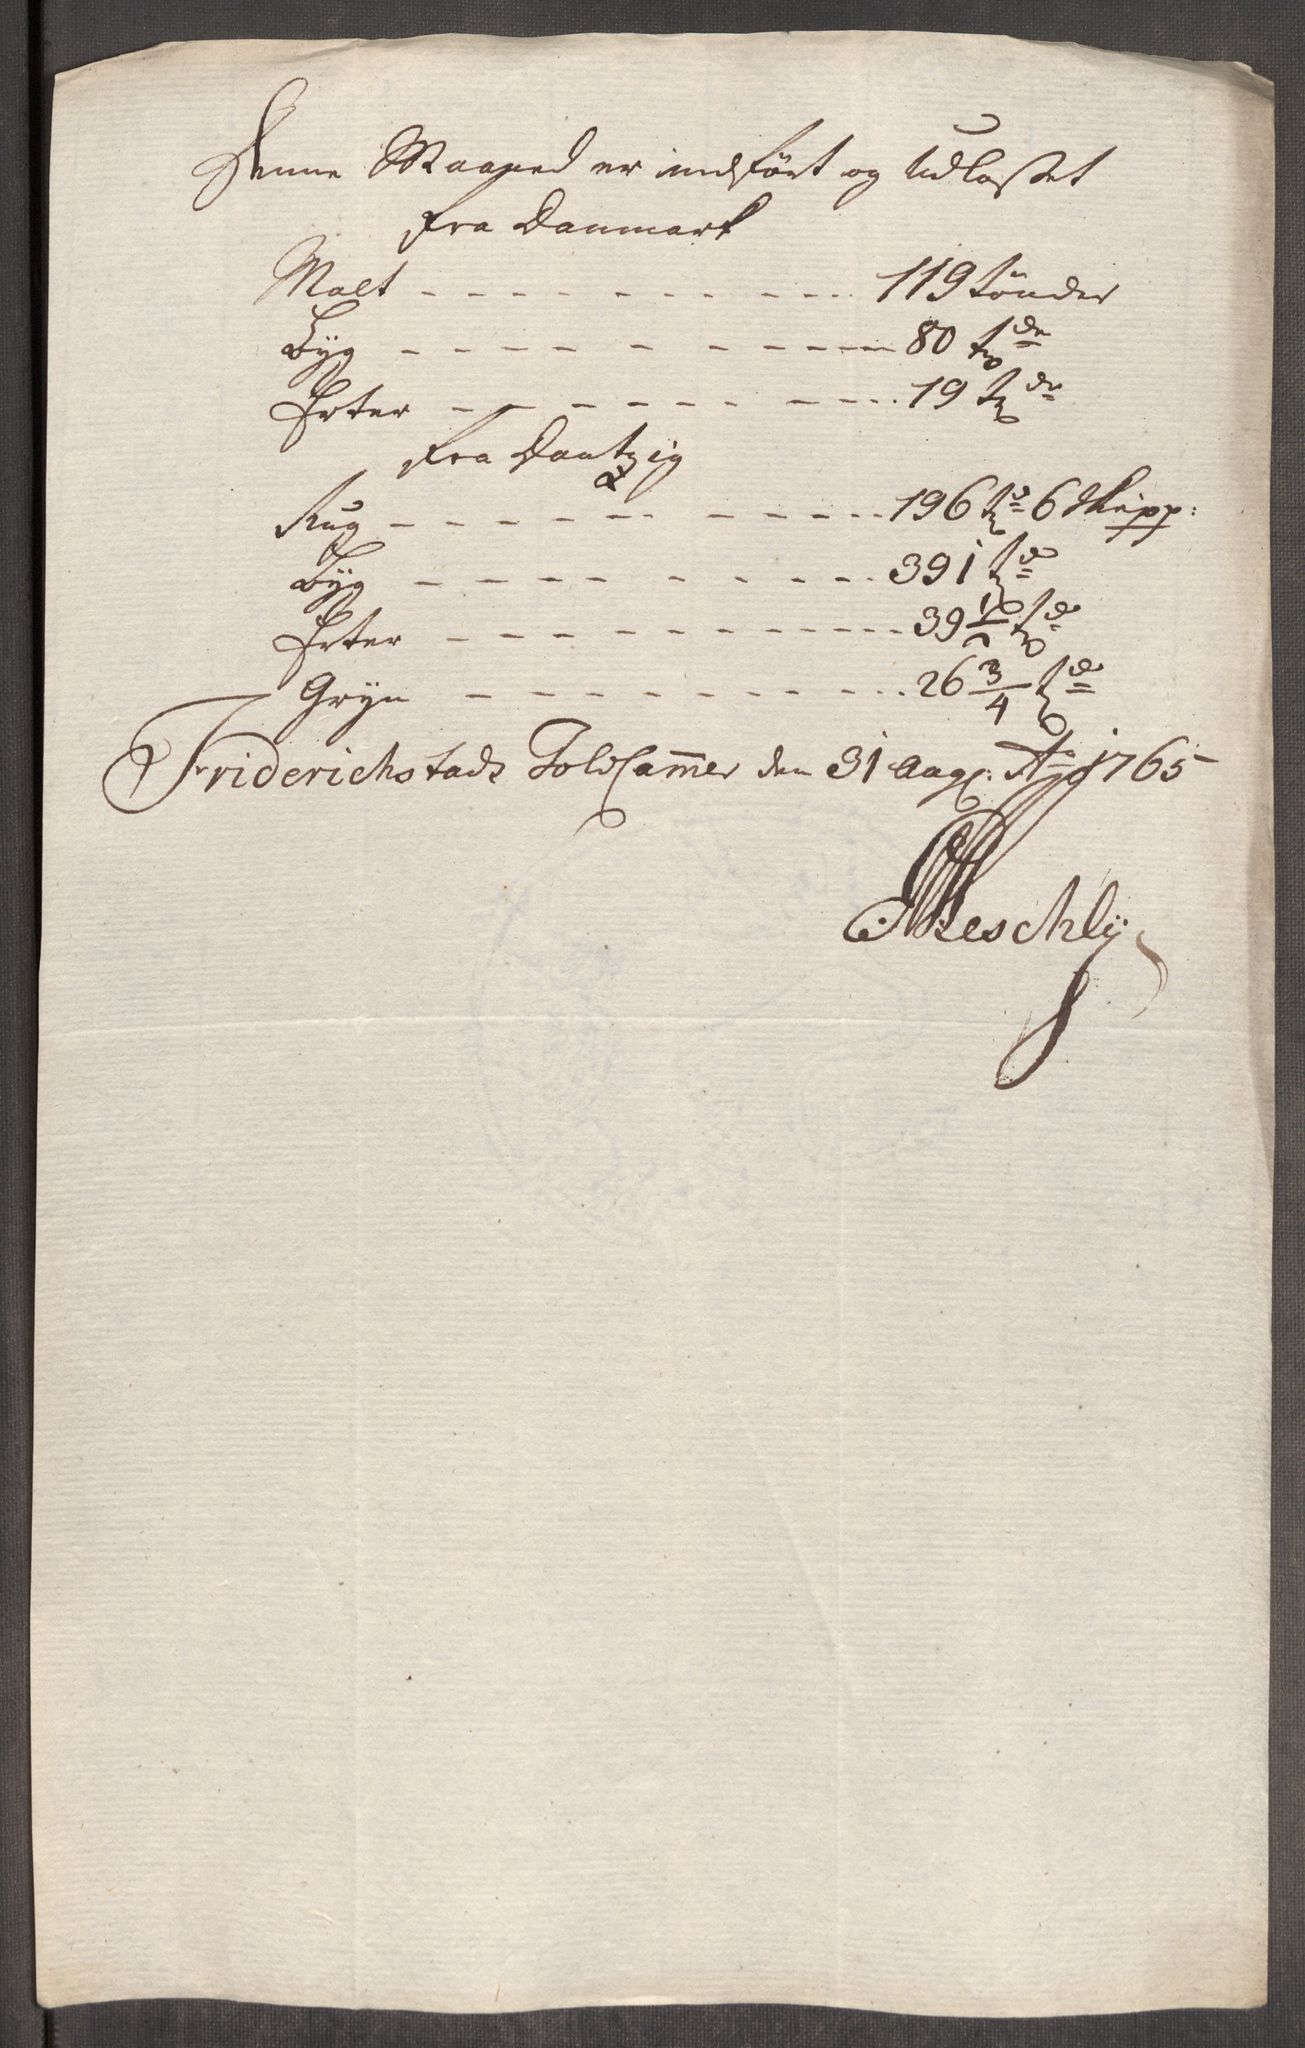 Denne Maaned er indført og Udlosset
fra Danmark
Malt - - - - - - - - - - 119 tönder
Byg - - - - - - - - - - 80 tdr
Erter - - - - - - - - - - 19 tdr
fra Dantzig
Rug - - - - - - - - - - 196 td 6 Skepp:
Byg - - - - - - - - - - 391 td
Erter - - - - - - - - - - 39 1/2 td
Gryn - - - - - - - - - - 26 3/4 td
Friderichstads Told Cammer den 31 Aug: Ao 1765